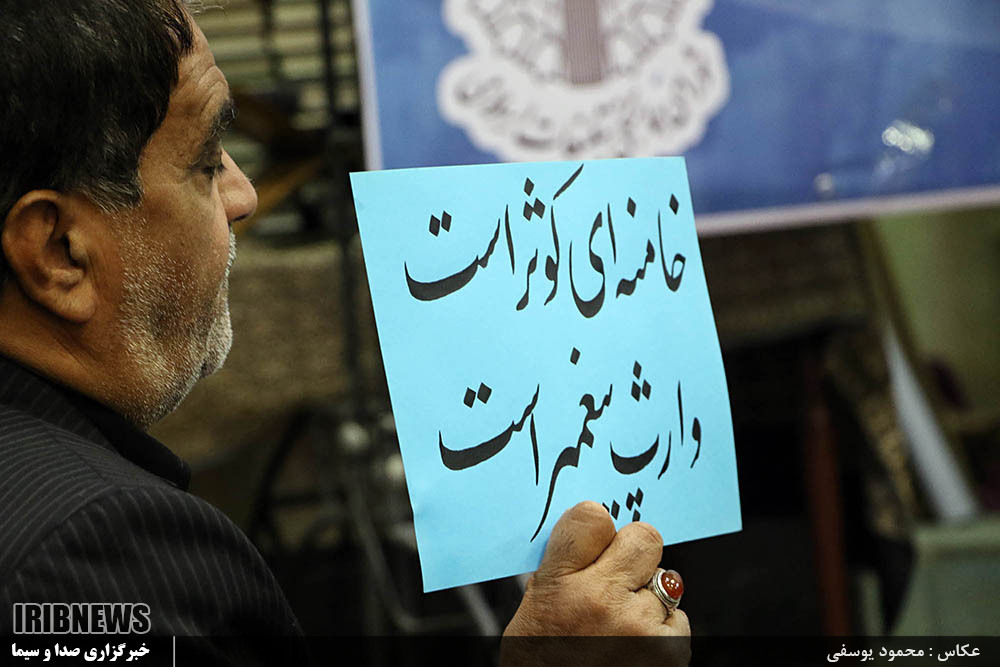 خامنه ای کوثر است
وارث پیغمبر است
IRIBNEWS
خبرگزاری صدا و سیما
عکاس : محمود یوسفی